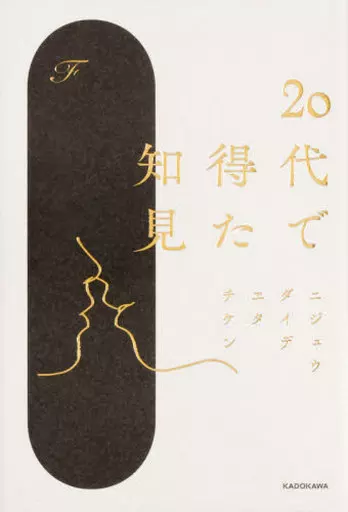 F
20
代で
得た
知見
ニジュウ
ダイデ
エタ
チケン
KADOKAWA